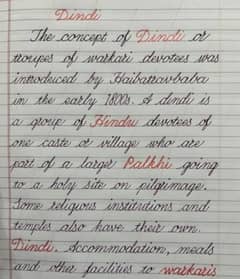 Dindi
The concept of Dindi or
troupes of warkari devotees was
introduced by Haibatravbaba
in the early 1800s. A dindi is
a group of Hindu devotees of
one caste or village who are
part of a larger Palkhi going
to a holy site on pilgrimage.
Some religious institutions and
temples also have their own
Dindi. Accommodation, meals
and other facilities to warkaris